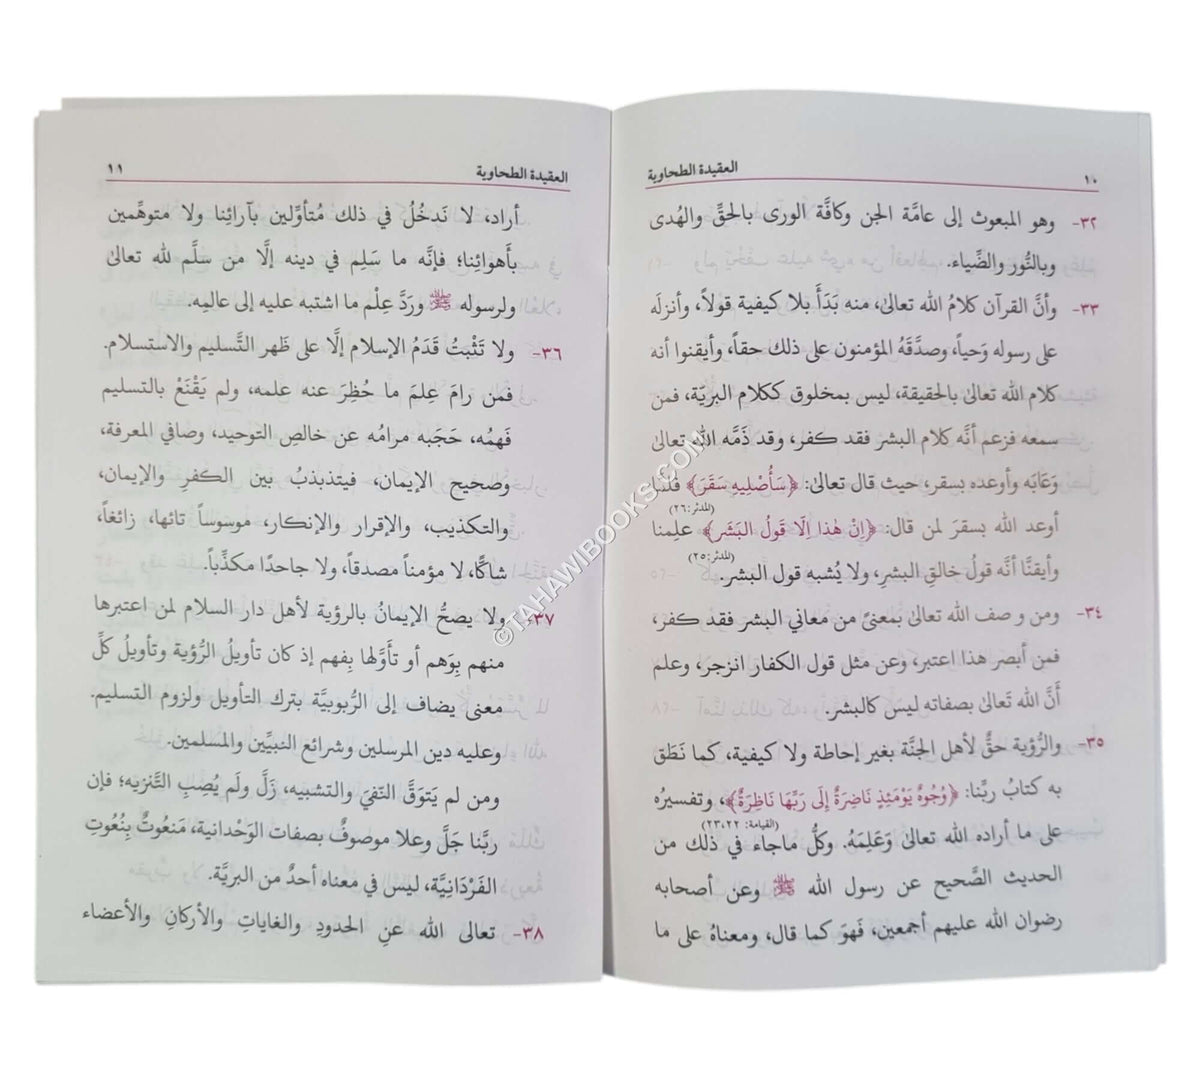 العقيدة الطحاوية ١٠
٣٢- وهو المبعوث إلى عامَّة الجن وكافَّة الورى بالحقِّ والهُدى
وبالنُّور والضِّياء.
٣٣- وأنَّ القرآن كلامُ الله تعالىٰ، منه بَدَأَ بلا كيفية قولاً، وأنزلَه
على رسوله وَحياً، وصدَّقَهُ المؤمنون على ذلك حقاً، وأيقنوا أنه
كلام الله تعالىٰ بالحقيقة، ليس بمخلوق ككلام البريّة، فمن
سمعه فزعم أنَّه كلام البشر فقد كفر، وقد ذمَّه الله تعالىٰ
وَعَابَه وأوعده بسقر، حيث قال تعالىٰ: ﴿سَأُصْلِيهِ سَقَرَ﴾ فلمَّا
(المدثر:٢٦)
أوعد الله بسقرَ لمن قال: ﴿إِنْ هٰذا اِلّا قَولُ البَشَر﴾ علِمنا
(المدثر:٢٥)
وأيقنَّا أنَّه قولُ خالقِ البشرِ، ولا يُشبه قول البشر.
٣٤- ومن و صف الله تعالىٰ بمعنىً من معاني البشر فقد كفر،
فمن أبصر هذا اعتبر، وعن مثل قول الكفار انزجر، وعلم
أنَّ الله تَعالىٰ بصفاته ليس كالبشر.
٣٥- والرُّؤية حقٌّ لأهل الجنَّة بغير إحاطة ولا كيفية، كما نَطَق
به كتابُ ربِّنا: ﴿وُجُوهٌ يَوْمَئِذٍ نَاضِرَةٌ إِلَى رَبِّهَا نَاظِرَةٌ﴾، وتفسيرُه
(القيامة: ٢٣،٢٢)
على ما أراده الله تعالىٰ وَعَلِمَهُ. وكلُّ ماجاء في ذلك من
الحديث الصَّحيح عن رسول الله ﷺ وعن أصحابه
رضوان الله عليهم أجمعين، فَهوَ كما قال، ومعناهُ على ما
العقيدة الطحاوية ١١
أراد، لا نَدخُلُ في ذلك مُتأوِّلين بآرائِنا ولا متوهِّمين
بأَهوائِنا؛ فإنَّه ما سَلِم في دينه إلَّا من سلَّم لله تعالىٰ
ولرسوله ﷺ ورَدَّ عِلْم ما اشتبه عليه إلى عالِمِه.
٣٦- ولا تَثْبتُ قَدَمُ الإسلام إلَّا على ظَهر التَّسليم والاستسلام.
فمن رامَ عِلمَ ما حُظِرَ عنه علمه، ولم يَقْنَعْ بالتسليم
فَهمُه، حَجَبه مرامُه عن خالصِ التوحيد، وصافي المعرفة،
وصحيح الإيمان، فيتذبذبُ بين الكفرِ والإيمان،
والتكذيب، والإقرار والإنكار، موسوساً تائها، زائغاً،
شاكًّا، لا مؤمناً مصدقاً، ولا جاحدا مكذِّباً.
٣٧- ولا يصحُّ الإيمانُ بالرؤية لأهل دار السلام لمن اعتبرها
منهم بِوَهم أو تأوَّلها بِفهم إذ كان تأويلُ الرُّؤية وتأويلُ كلِّ
معنى يضاف إلى الرُّبوبيَّة بترك التأويل ولزوم التسليم.
وعليه دين المرسلين وشرائع النبيِّين والمسلمين.
ومن لم يَتوَقَّ النَّفيَ والتشبيه، زَلَّ ولَم يُصِبِ التَّنزيه؛ فإن
ربَّنا جَلَّ وعلا موصوفٌ بصفات الوَحْدانية، مَنعُوتٌ بِنُعُوتِ
الفَرْدَانِيَّة، ليس في معناه أحدٌ من البريَّة.
٣٨- تعالى الله عنِ الحدودِ والغاياتِ والأركانِ والأعضاء
©TAHAWIBOOKS.COM